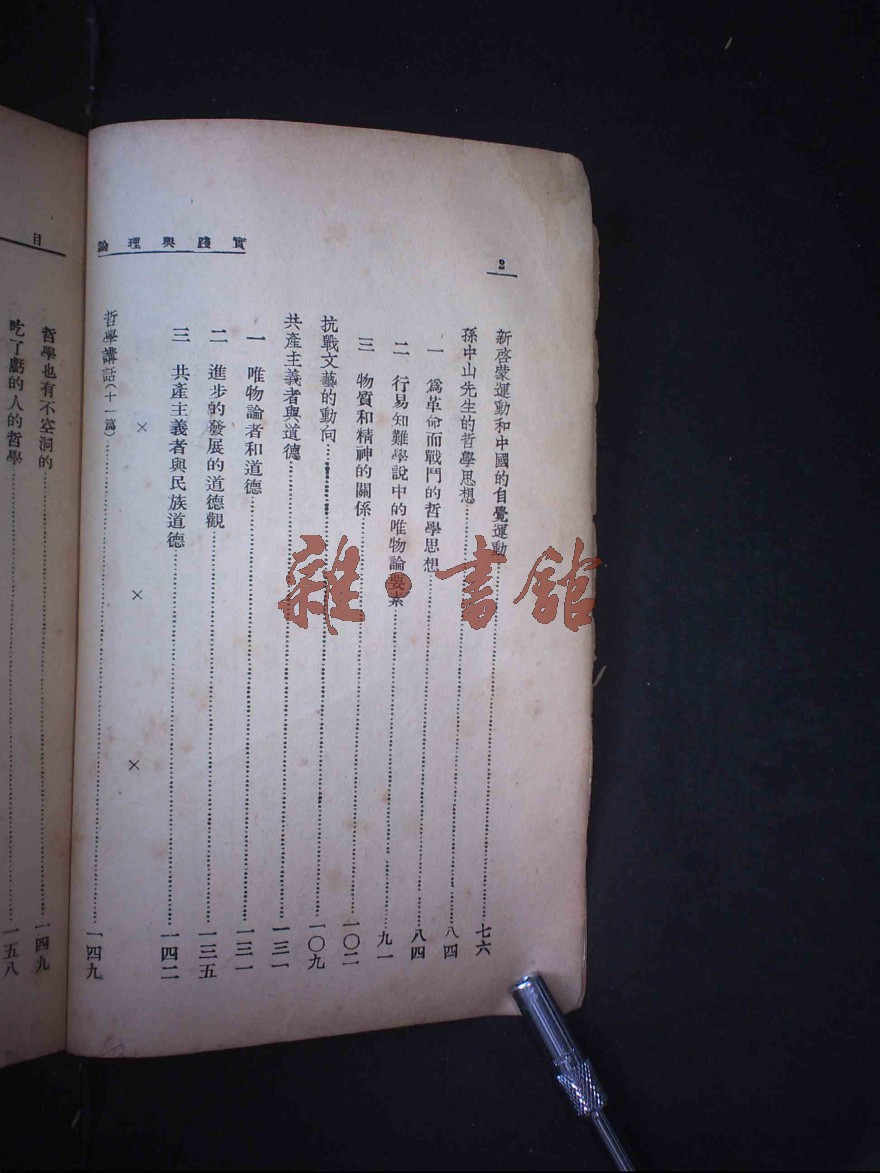 2
實踐與理論
新啓蒙運動和中國的自覺運動……七六
孫中山先生的哲學思想……八四
一　爲革命而戰鬥的哲學思想……八四
二　行易知難學說中的唯物論要素……九一
三　物質和精神的關係……一〇二
抗戰文藝的動向……一〇九
共產主義者與道德……一三一
一　唯物論者和道德……一三一
二　進步的發展的道德觀……一三五
三　共產主義者與民族道德……一四二
×　×　×
哲學講話(十一篇)……一四九
目
哲學也有不空洞的……一四九
吃了虧的人的哲學……一五八
雜·書館